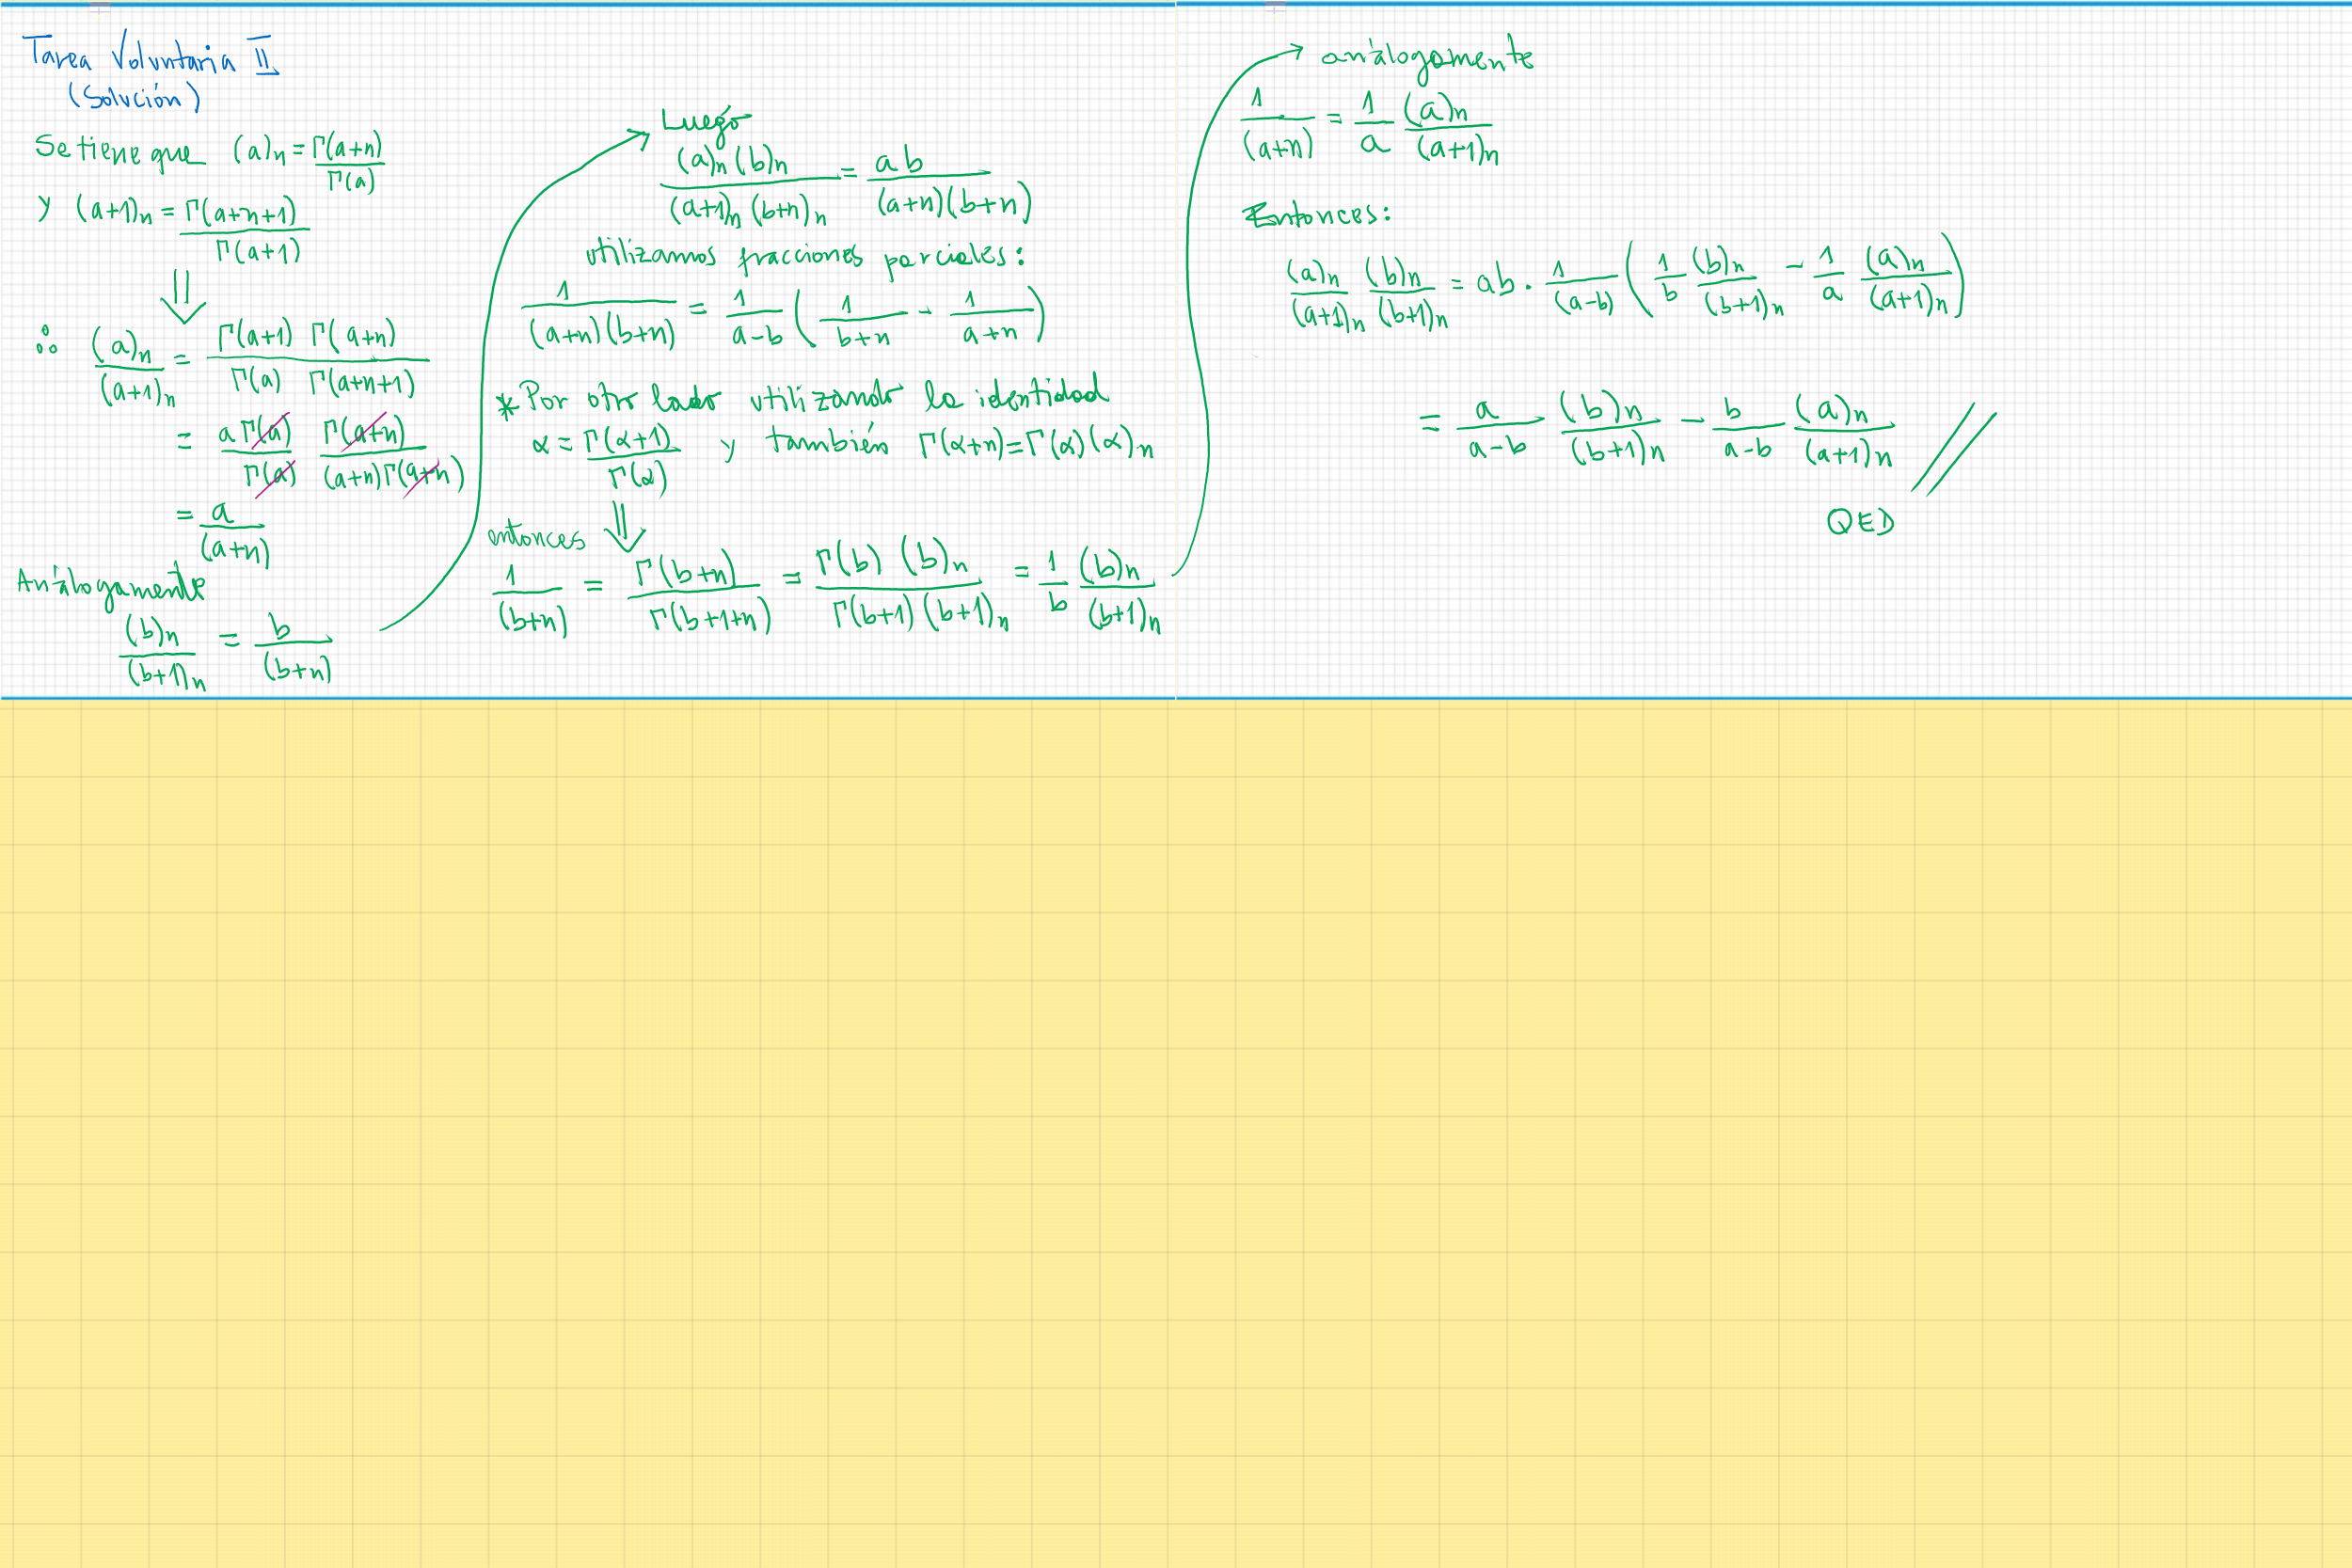 Tarea Voluntaria II
(Solución)
Se tiene que (a)n = Γ(a+n)/Γ(a)
y (a+1)n = Γ(a+n+1)/Γ(a+1)
⇓
∴ (a)n/(a+1)n = Γ(a+1) Γ(a+n)/Γ(a) Γ(a+n+1)
= aΓ(a)/Γ(a) Γ(a+n)/(a+n)Γ(a+n)
= a/(a+n)
Análogamente
(b)n/(b+1)n = b/(b+n)
Luego
(a)n (b)n/(a+1)n (b+n)n = ab/(a+n)(b+n)
utilizamos fracciones parciales:
1/(a+n)(b+n) = 1/a-b (1/b+n - 1/a+n)
* Por otro lado utilizando la identidad
α = Γ(α+1)/Γ(α) y también Γ(α+n)=Γ(α)(α)n
entonces ⇓
1/(b+n) = Γ(b+n)/Γ(b+1+n) = Γ(b) (b)n/Γ(b+1) (b+1)n = 1/b (b)n/(b+1)n
análogamente
1/(a+n) = 1/a (a)n/(a+1)n
Entonces:
(a)n/(a+1)n (b)n/(b+1)n = ab · 1/(a-b) (1/b (b)n/(b+1)n - 1/a (a)n/(a+1)n)
= a/a-b (b)n/(b+1)n - b/a-b (a)n/(a+1)n //
QED